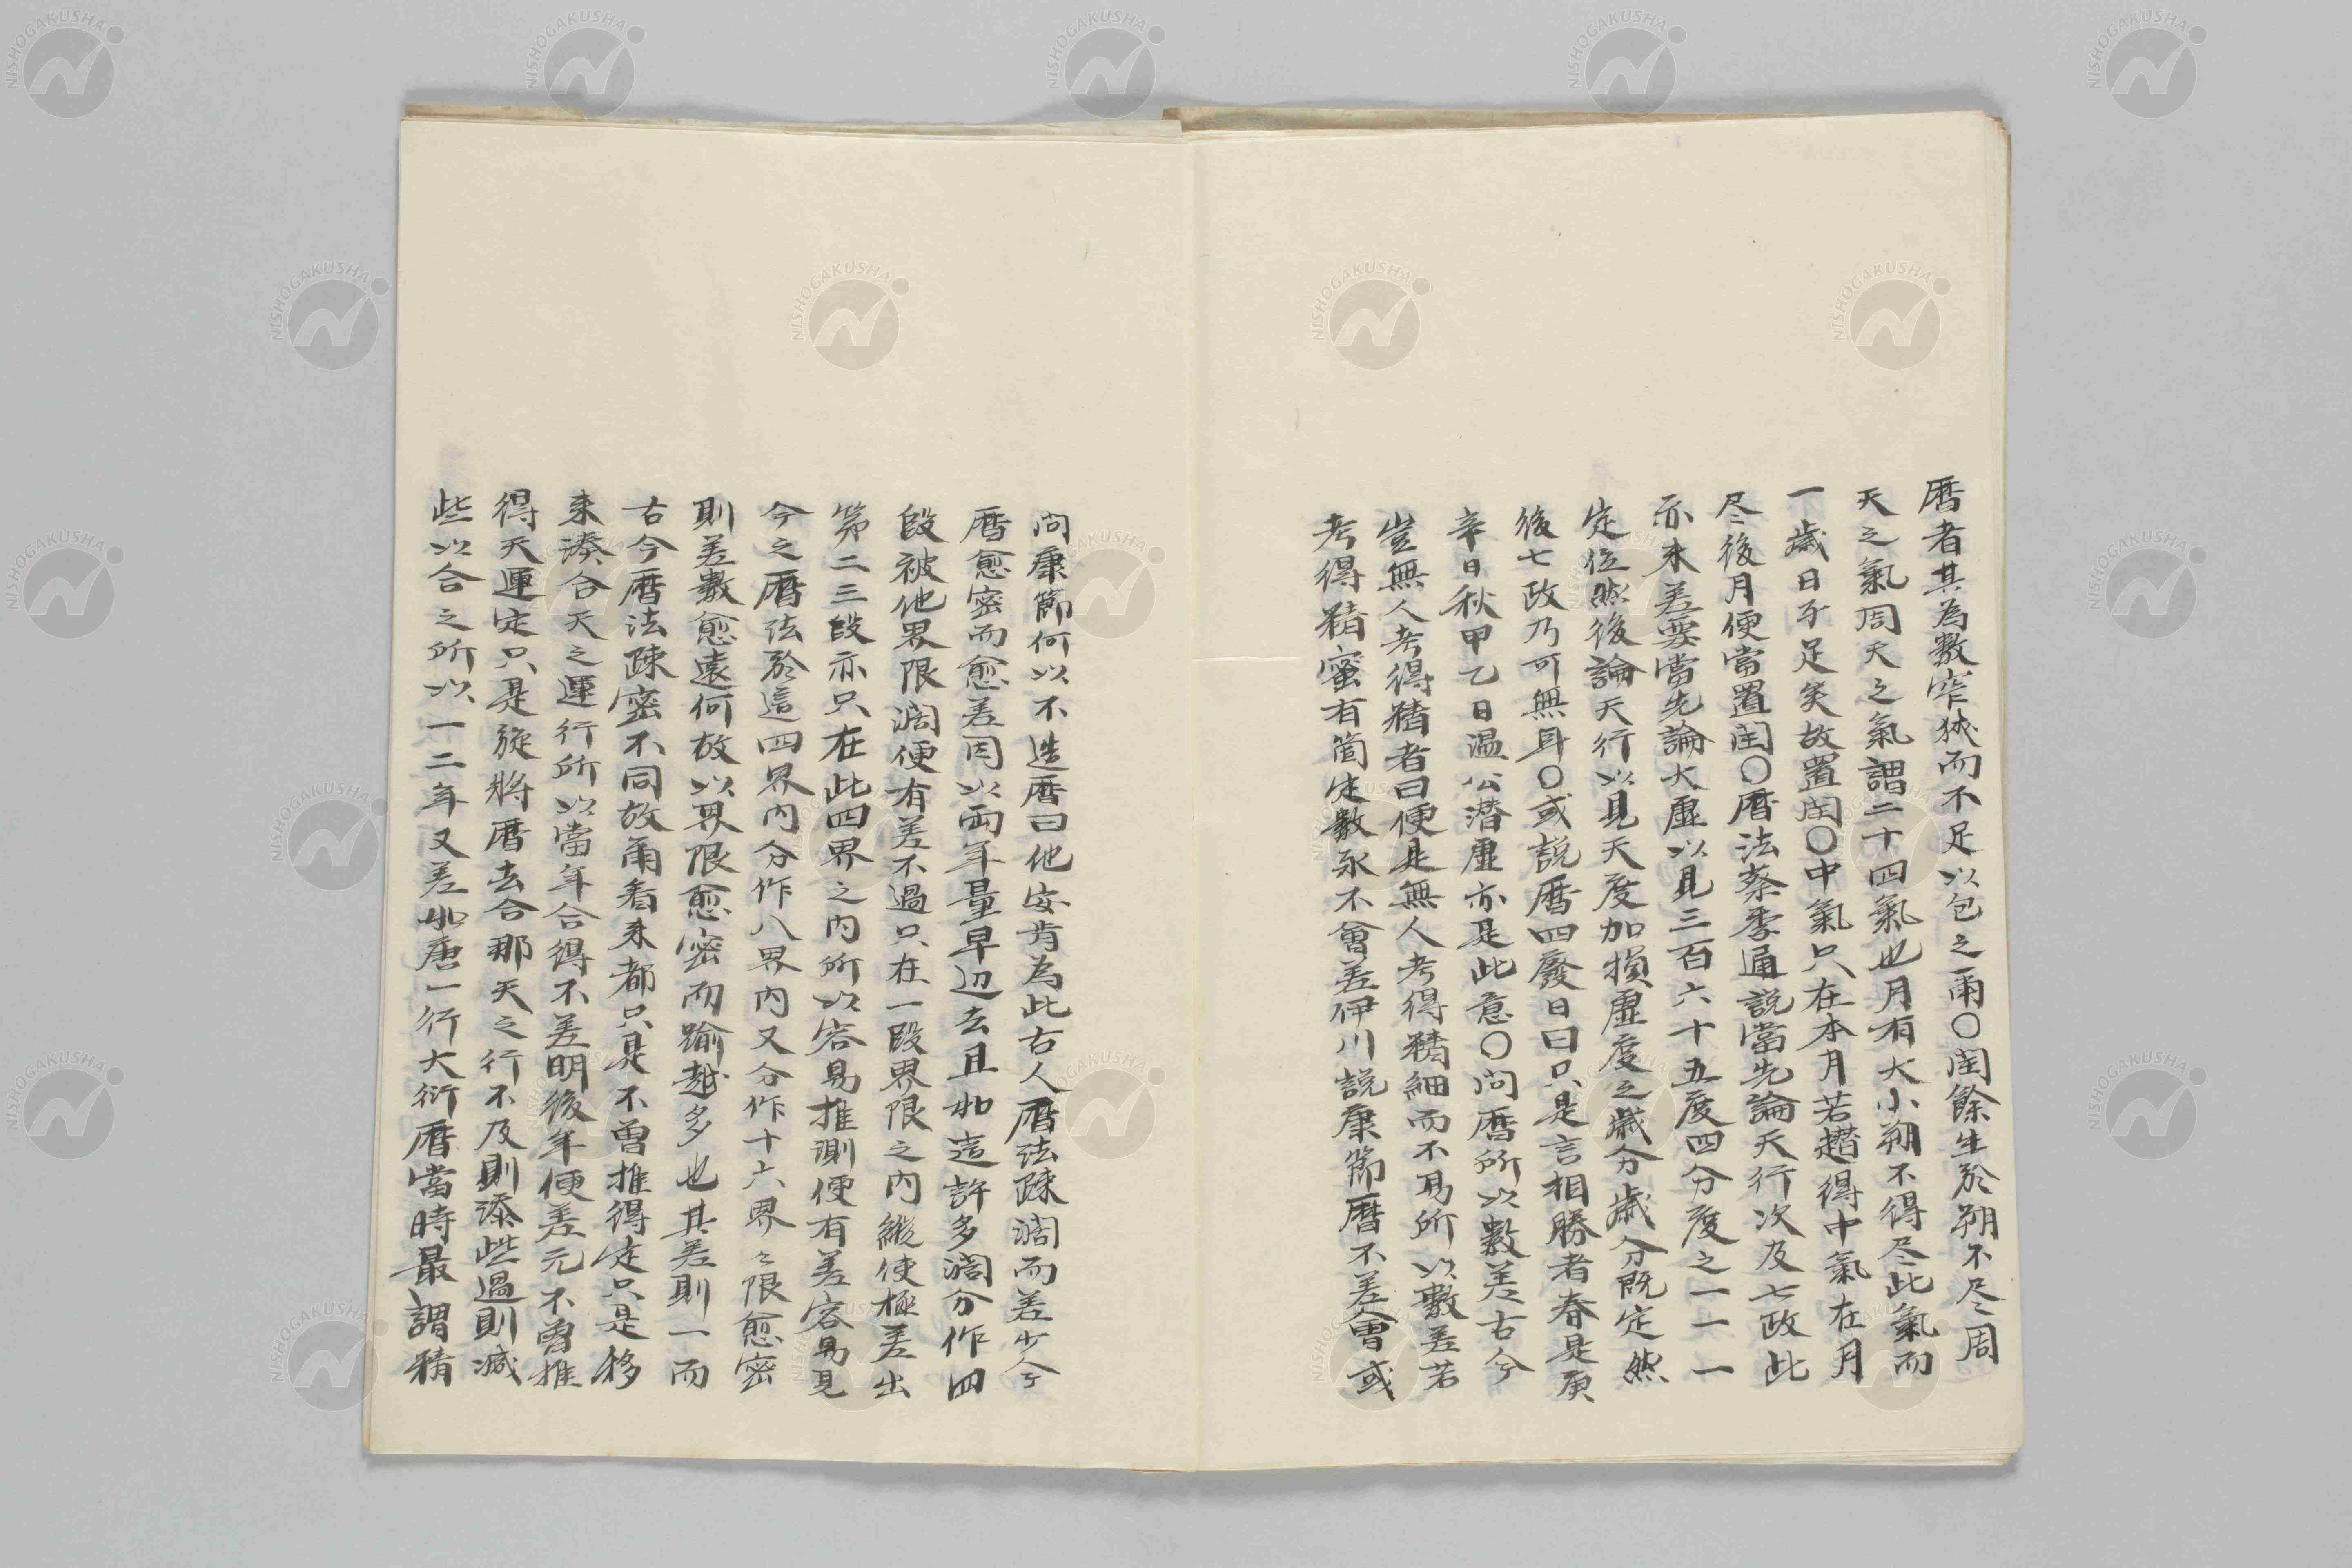 暦者其為數窄狹而不足以包之爾〇閏餘生於朔不尽周
天之氣周天之氣謂二十四氣也月有大小朔不得尽此氣而
一歳日子足矣故置閏〇中氣只在本月若趲得中氣在月
尽後月便當置閏〇暦法蔡季通説當先論天行次及七政此
亦未差要當先論大虚以見三百六十五度四分度之一一一
定位然後論天行以見天度加損虚度之歳分歳分既定然
後七政乃可無耳〇或説暦四廢日曰只是言相勝者春是庚
辛日秋甲乙日温公潜虚亦是此意〇問暦所以數差古今
豈無人考得精者曰便是無人考得精細而不易所以數差若
考得精蜜有箇定數永不會差伊川説康節暦不差會或
問康節何以不造暦曰他安肯為此古人暦法疎濶而差少今
暦愈密而愈差因以兩年量早辺去且如這許多濶分作四
段被他界限濶便有差不過只在一段界限之内縱使極差出
第二三段亦只在此四界之内所以容易推測便有差容易見
今之暦法於這四界内分作八界内又分作十六界之限愈密
則差數愈遠何故以界限愈密而踰越多也其差則一而
古今暦法疎密不同故爾看来都只是不曽推得定只是移
来湊合天之運行所以當年合得不差明後年便差元不曽推
得天運定只是旋將暦去合那天之行不及則添些過則減
些以合之所以一二年又差如唐一行大衍暦當時最謂精
NISHOGAKUSHA